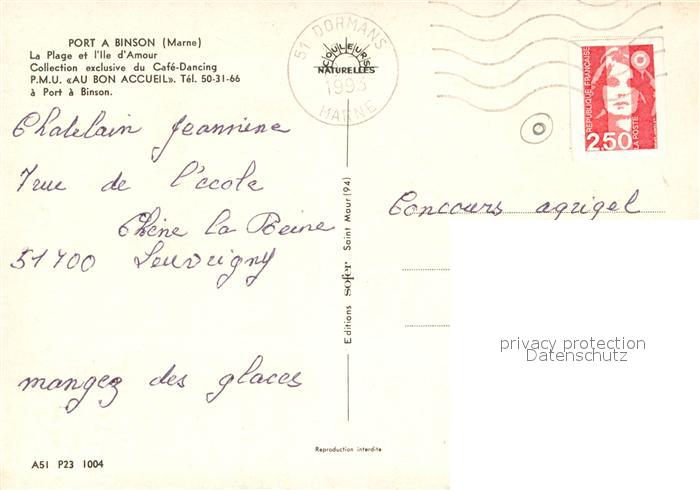 PORT A BINSON (Marne)
La Plage et l'Ile d'Amour
Collection exclusive du Café-Dancing
P.M.U. «AU BON ACCUEIL». Tél. 50-31-66
à Port à Binson.
51 DORMANS
COULEURS
NATURELLES
1993
MARNE
REPUBLIQUE FRANÇAISE
2,50
LA POSTE
Chatelain Jeannine
7 rue de l'école
Chêne la Reine
51700 Leuvrigny
mangez des glaces
Editions sofer Saint Maur (94)
Concours agrigel
privacy protection
Datenschutz
Reproduction interdite
A51 P23 1004